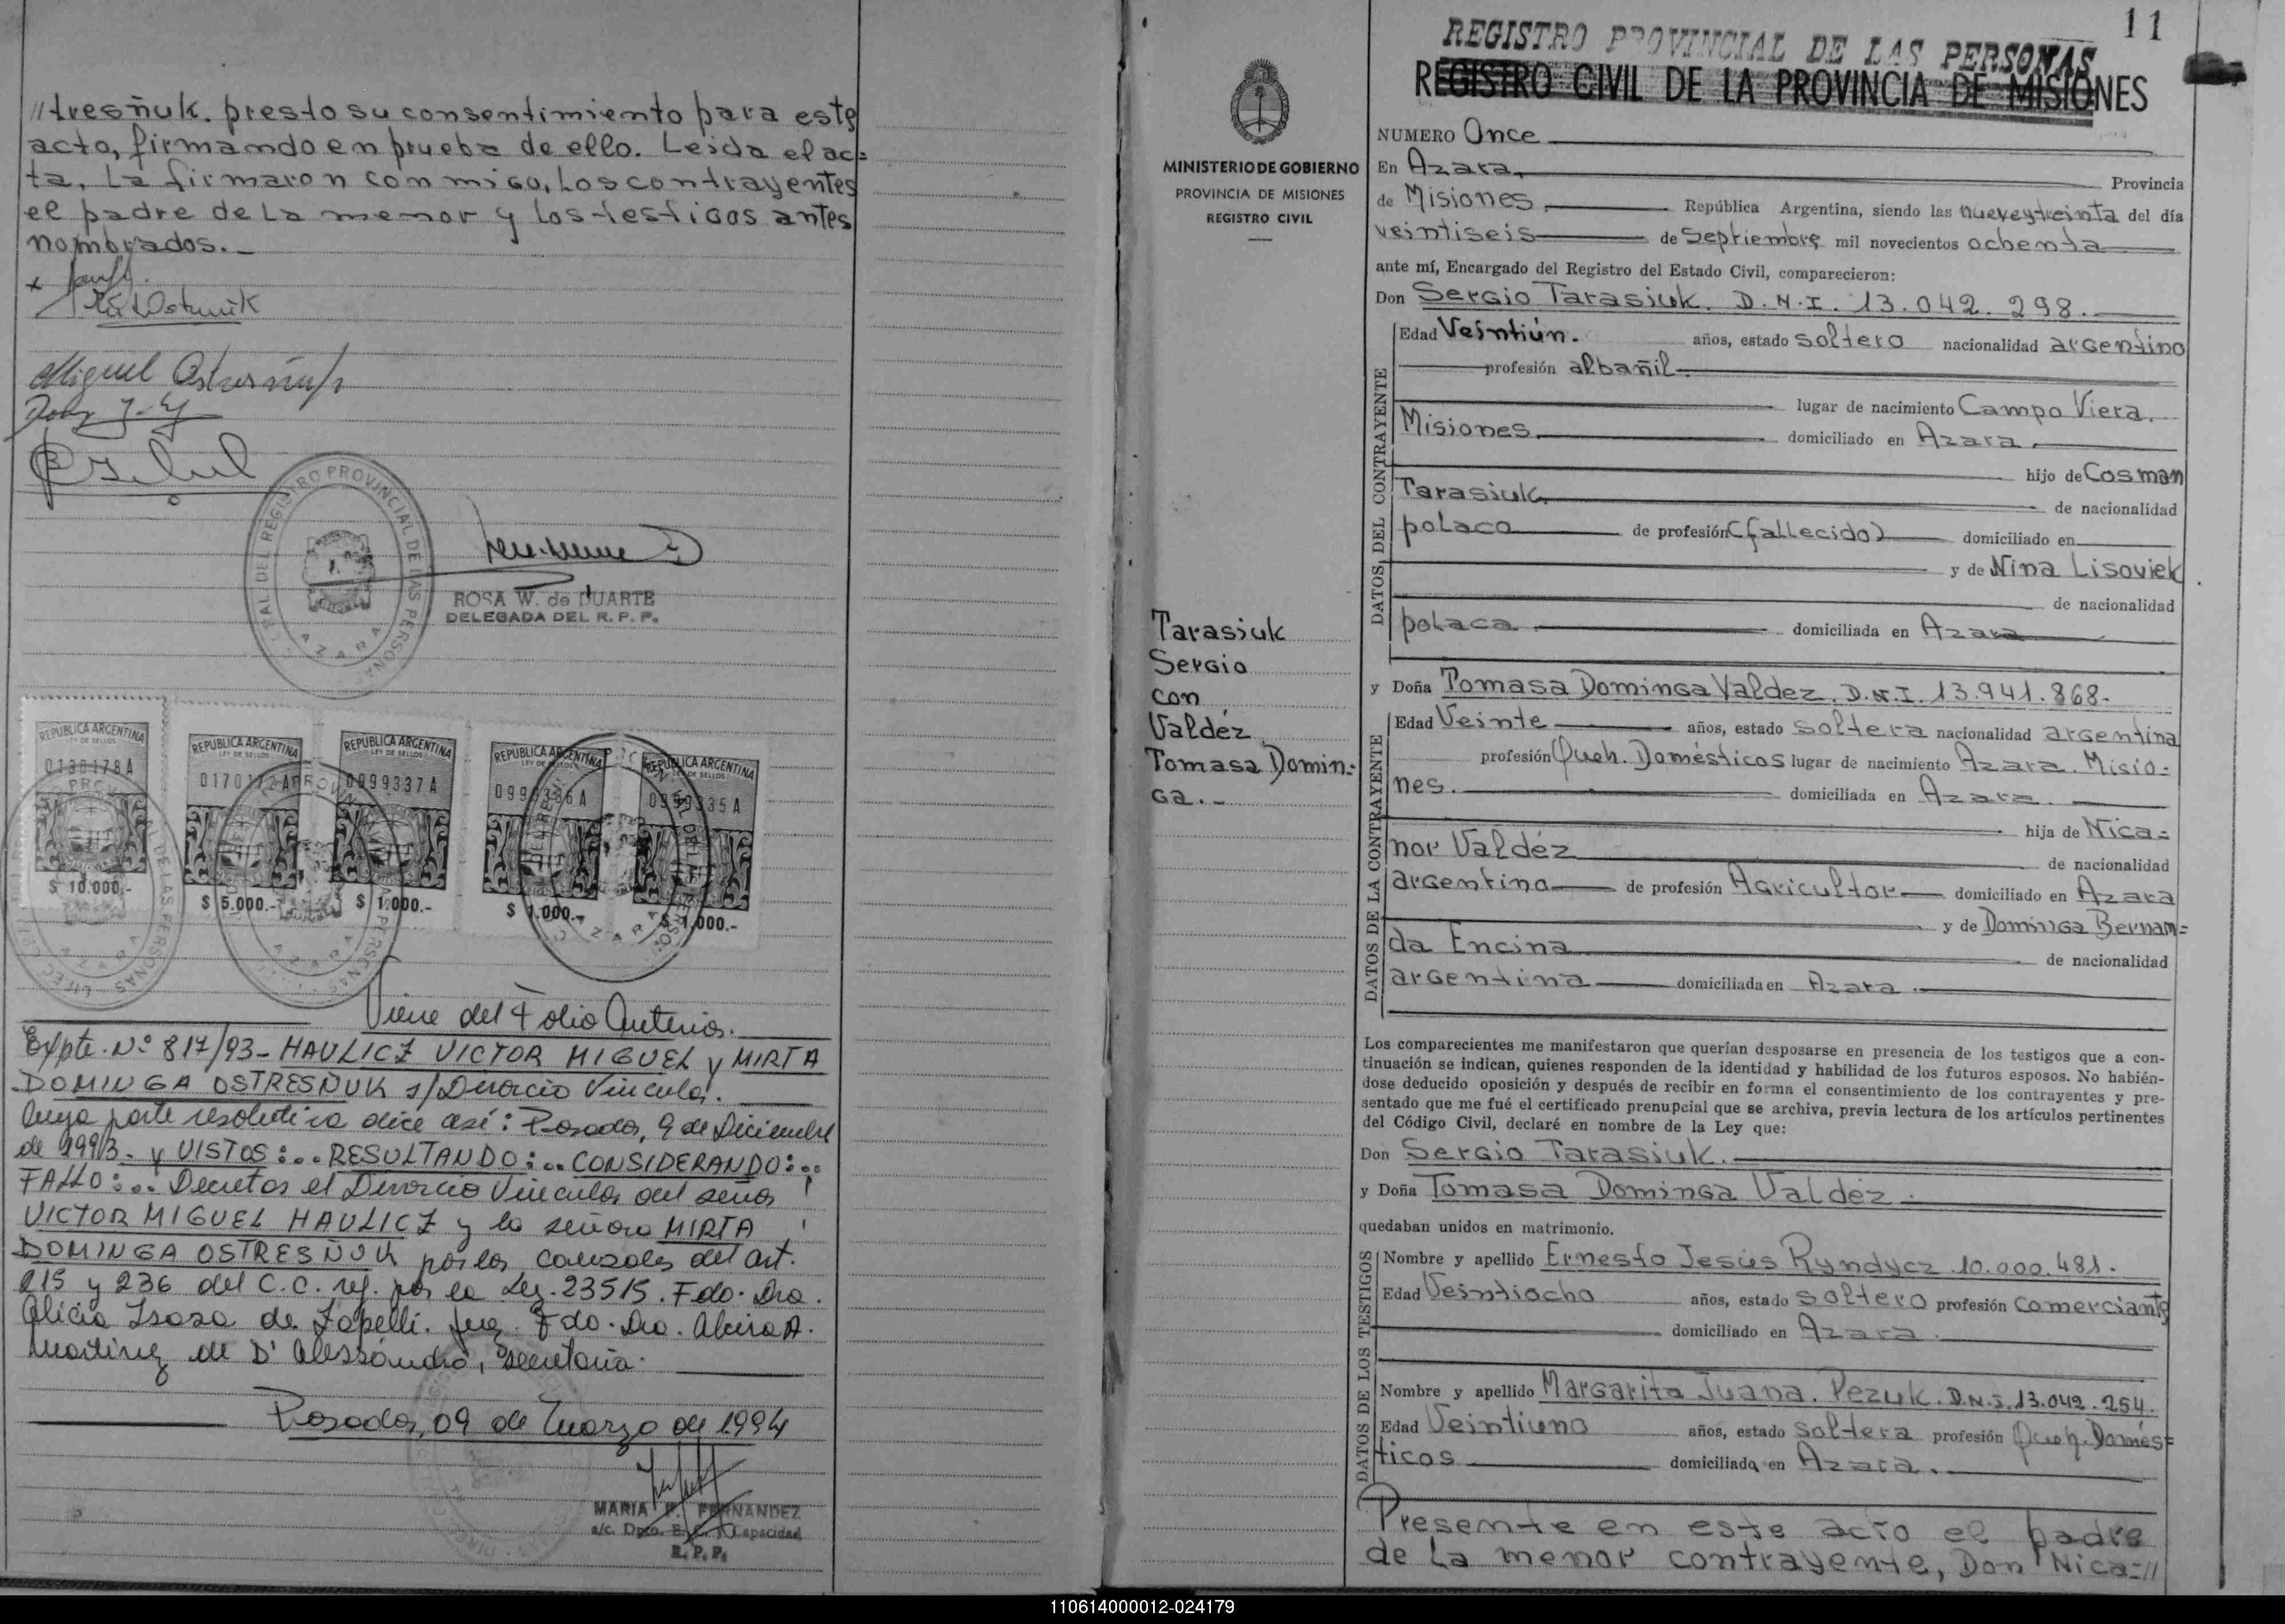 //tresñuk. presto su consentimiento para este
acto, firmando en prueba de ello. Leida el ac=
ta, La firmaron conmigo, Los contrayentes
el padre de La menor y Los testigos antes
nombrados._
Miguel Ostresñuk
REGISTRO PROVINCIAL DE LAS PERSONAS
AZARA
ROSA W. de DUARTE
DELEGADA DEL R. P. P.
REPUBLICA ARGENTINA
LEY DE SELLOS
0130178A
$ 10.000.-
REPUBLICA ARGENTINA
LEY DE SELLOS
0170172A
$ 5.000.-
REPUBLICA ARGENTINA
LEY DE SELLOS
0999337A
$ 1.000.-
REPUBLICA ARGENTINA
LEY DE SELLOS
0999336A
$ 1.000.-
REPUBLICA ARGENTINA
LEY DE SELLOS
0999335A
$ 1.000.-
Viene del Folio Anterior.
Expte. Nº 817/93- HAULICZ VICTOR MIGUEL y MIRTA
DOMINGA OSTRESÑUK s/Divorcio Vincular.
Cuya parte resolutiva dice así: Posadas, 9 de Diciembre
de 1993- y VISTOS:... RESULTANDO:... CONSIDERANDO:...
FALLO:... Decretar el Divorcio Vincular del señor
VICTOR MIGUEL HAULICZ y la señora MIRTA
DOMINGA OSTRESÑUK por las causales del art.
215 y 236 del C.C. ref. por la Ley. 23515. Fdo. Dra.
Alicia Isasa de Zapelli. Juez. Fdo. Dra. Alcira A.
Martinez de D'Alessandro, secretaria.
Posadas, 09 de Marzo de 1994
MARIA F. FERNANDEZ
a/c. Dpto. E. C. y Capacidad
R. P. P.
11
REGISTRO PROVINCIAL DE LAS PERSONAS
REGISTRO CIVIL DE LA PROVINCIA DE MISIONES
MINISTERIO DE GOBIERNO
PROVINCIA DE MISIONES
REGISTRO CIVIL
Tarasiuk
Sergio
con
Valdéz
Tomasa Domin-
ga.-
NUMERO Once
En Azara, Provincia
de Misiones República Argentina, siendo las nueve y treinta del día
veintiseis de Septiembre mil novecientos ochenta
ante mí, Encargado del Registro del Estado Civil, comparecieron:
Don Sergio Tarasiuk. D.N.I. 13.042.298.
DATOS DEL CONTRAYENTE
Edad Veintiún. años, estado soltero nacionalidad argentino
profesión albañil.
lugar de nacimiento Campo Viera.
Misiones. domiciliado en Azara.
hijo de Cosman
Tarasiuk de nacionalidad
polaco de profesión (fallecido) domiciliado en
y de Nina Lisoviek
de nacionalidad
polaca domiciliada en Azara
y Doña Tomasa Dominga Valdez. D.N.I. 13.941.868.
DATOS DE LA CONTRAYENTE
Edad Veinte años, estado soltera nacionalidad argentina
profesión Queh. Domésticos lugar de nacimiento Azara. Misio=
nes. domiciliada en Azara.
hija de Nica=
nor Valdéz de nacionalidad
argentino de profesión Agricultor domiciliado en Azara
y de Dominga Bernam=
da Encina de nacionalidad
argentina domiciliada en Azara.
Los comparecientes me manifestaron que querían desposarse en presencia de los testigos que a con-
tinuación se indican, quienes responden de la identidad y habilidad de los futuros esposos. No habién-
dose deducido oposición y después de recibir en forma el consentimiento de los contrayentes y pre-
sentado que me fué el certificado prenupcial que se archiva, previa lectura de los artículos pertinentes
del Código Civil, declaré en nombre de la Ley que:
Don Sergio Tarasiuk.
y Doña Tomasa Dominga Valdéz.
quedaban unidos en matrimonio.
DATOS DE LOS TESTIGOS
Nombre y apellido Ernesto Jesús Ryndycz 10.000.481.
Edad Veintiocho años, estado soltero profesión comerciante
domiciliado en Azara.
Nombre y apellido Margarita Juana. Pezuk. D.N.I. 13.042.254.
Edad Veintiuno años, estado soltera profesión Queh. Domés=
ticos domiciliado en Azara.
Presente en este acto el padre
de La menor contrayente, Don Nica=//
110614000012-024179